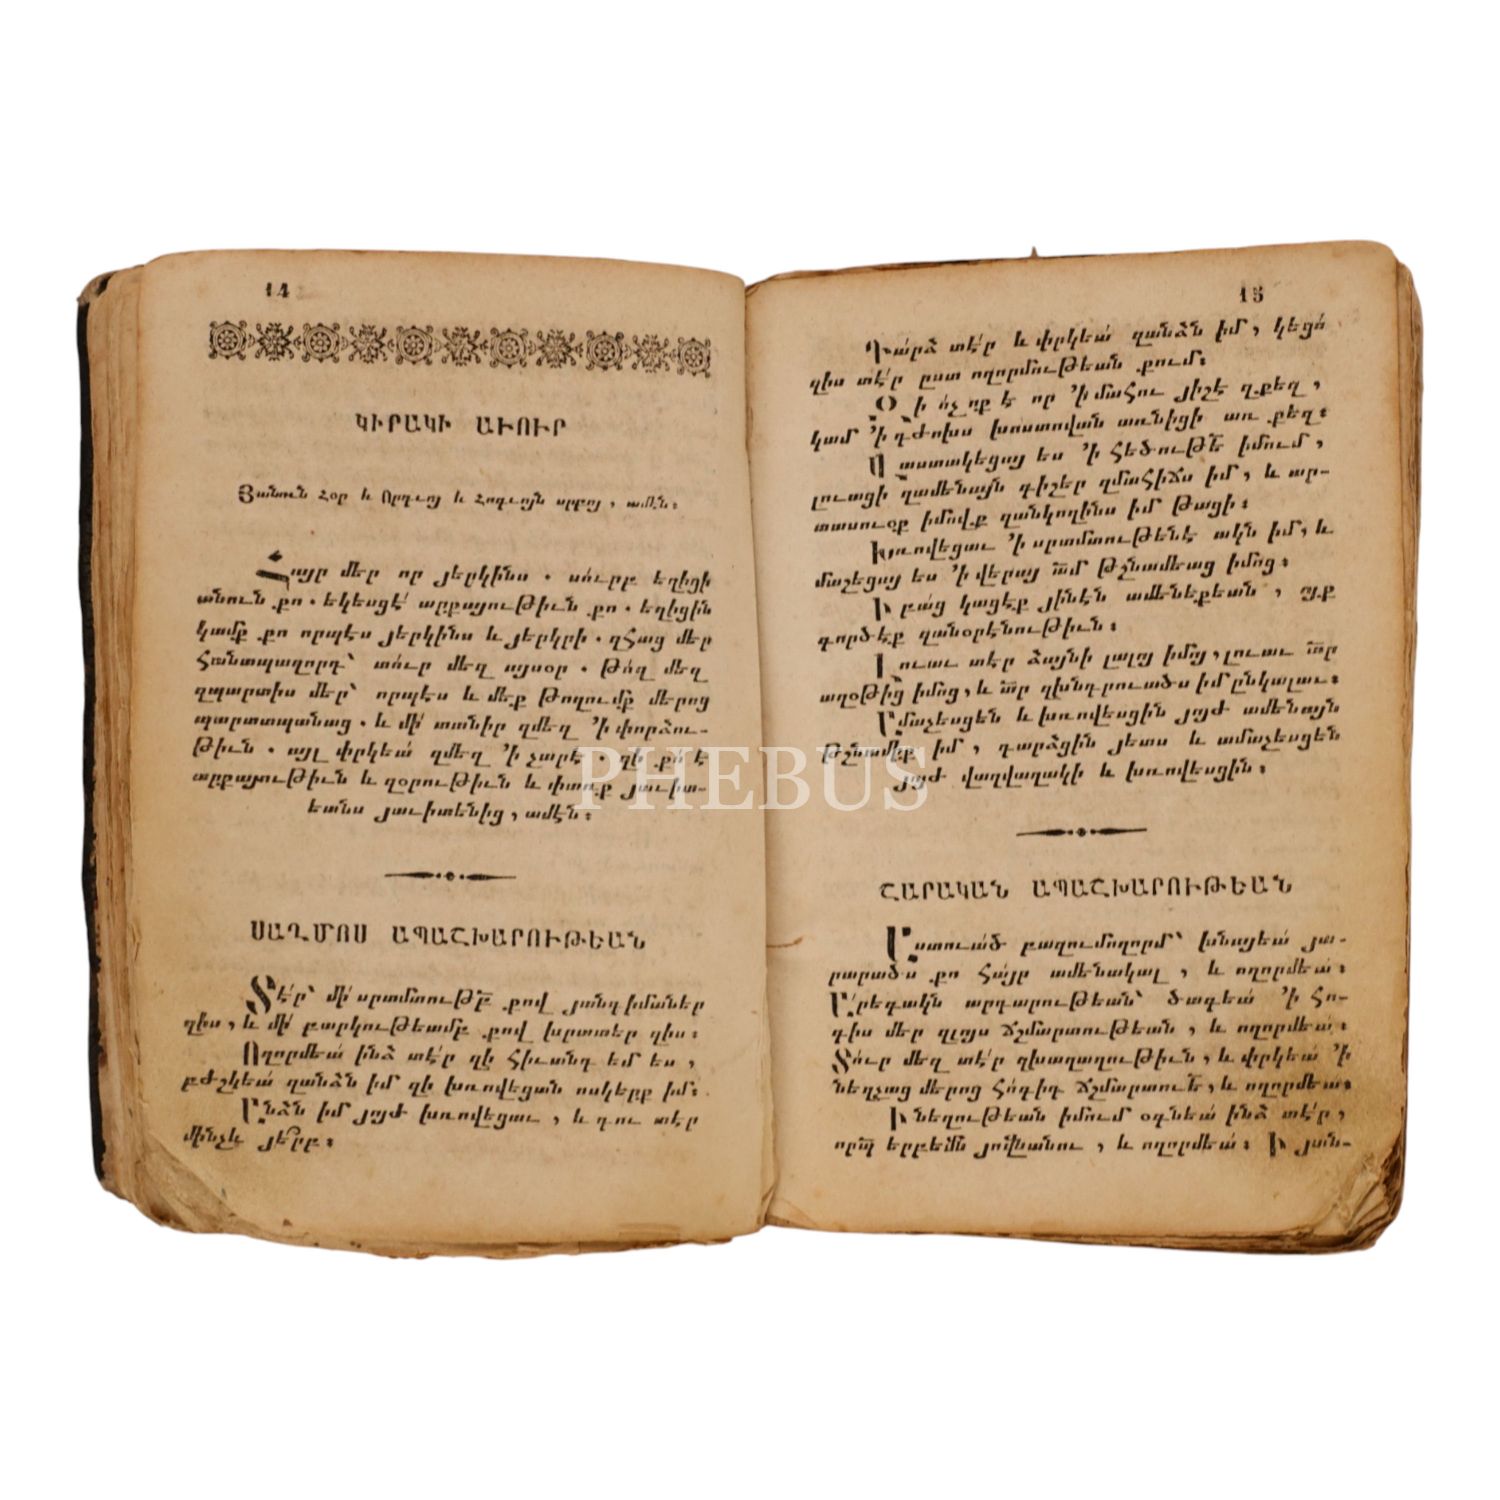 14
ԿԻՐԱԿԻ ԱՒՈՒՐ
Յանուն Հօր և Որդւոյ և Հոգւոյն սրբոյ, ամէն։
Հայր մեր որ յերկինս . սո՛ւրբ եղիցի
անուն քո . եկեսցէ՛ արքայութիւն քո . եղիցին
կամք քո որպէս յերկինս և յերկրի . զՀաց մեր
Հանապազորդ՝ տո՛ւր մեզ այսօր . թո՛ղ մեզ
զպարտիս մեր՝ որպէս և մեք թողումք մերոց
պարտապանաց . և մի՛ տանիր զմեզ ՚ի փորձու-
թիւն . այլ փրկեա՛ զմեզ ՚ի չարէ . զի քո՛ է
արքայութիւն և զօրութիւն և փառք յաւիտ-
եանս յաւիտենից, ամէն։
ՍԱՂՄՈՍ ԱՊԱՇԽԱՐՈՒԹԵԱՆ
Տէ՛ր՝ մի՛ սրտմտութբ̃ քով յանդիմաներ
զիս, և մի՛ բարկութեամբ քով խրատեր զիս։
Ողորմեա՛ ինձ տէ՛ր զի Հիւանդ եմ ես,
բժշկեա՛ զանձն իմ զի խռովեցան ոսկերք իմ։
Անձն իմ յոյժ խռովեցաւ, և դու տէր
մինչև յե՞րբ։
15
Դա՛րձ տէ՛ր և փրկեա՛ զանձն իմ, կեցո՛
զիս տէ՛ր ըստ ողորմութեան քում։
Զի ո՛չ ոք է որ ՚ի մահու յիշէ զքեզ,
կամ ՚ի դժոխս խոստովան առնիցի առ քեզ։
Վաստակեցայ ես ՚ի Հեծութե̃ իմում,
լուացի զամենայն գիշեր զմահիճս իմ, և ար-
տասուօք իմովք զանկողինս իմ թացի։
Խռովեցաւ ՚ի սրտմտութենէ ակն իմ, և
մաշեցայ ես ՚ի վերայ ա̃մ թշնամեաց իմոց։
Ի բա՛ց կացէք յինէն ամենեքեան, ոյք
գործէք զանօրէնութիւն։
Լուաւ տէր ձայնի լալոյ իմոյ, լուաւ տ̃ր
աղօթից իմոց, և տ̃ր զխնդրուածս իմ ընկալաւ։
Ամաչեսցեն և խռովեսցին յոյժ ամենայն
թշնամիք իմ, դարձցին յետս և ամաչեսցեն
յոյժ վաղվաղակի և խռովեսցին։
ՇԱՐԱԿԱՆ ԱՊԱՇԽԱՐՈՒԹԵԱՆ
Աստուած բազումողորմ՝ խնայեա՛ յա-
րարածս քո Հա՛յր ամենակալ, և ողորմեա՛։
Ա՛րեգակն արդարութեան՝ ծագեա՛ ՚ի Հո-
գիս մեր զլոյս ճշմարտութեան, և ողորմեա՛։
Տո՛ւր մեզ տէ՛ր զխաղաղութիւն, և փրկեա՛ ՚ի
նեղչաց մերոց Հո՛գիդ ճշմարտուե̃, և ողորմեա՛։
Ի նեղութեան իմում օգնեա՛ ինձ տէ՛ր,
որպ̃ երբեմն յովնանու, և ողորմեա՛։ Ի յան-
PHEBUS